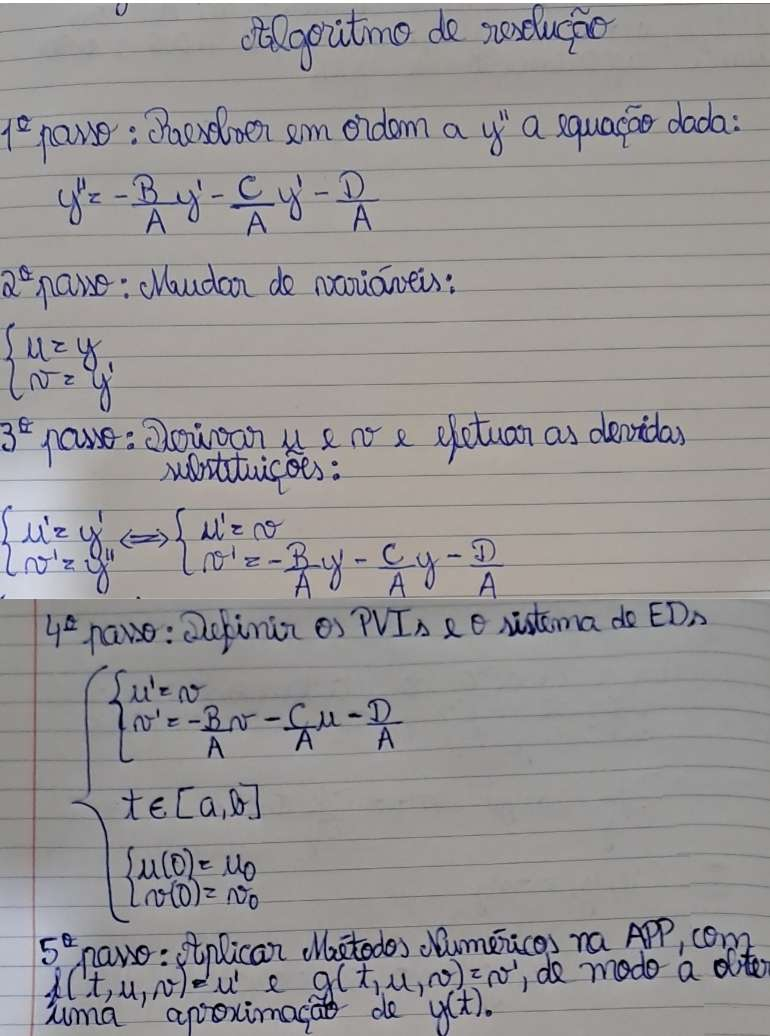 Algoritmo de resolução
1º passo: Resolver em ordem a y'' a equação dada:
y'' = -B/A y' - C/A y' - D/A
2º passo: Mudar de variáveis:
{ u = y
{ v = y'
3º passo: Derivar u e v e efetuar as devidas
substituições:
{ u' = y' <=> { u' = v
{ v' = y'' { v' = -B/A y' - C/A y - D/A
4º passo: Definir os PVIs e o sistema de EDs
{ u' = v
{ v' = -B/A v - C/A u - D/A
t ∈ [a,b]
{ u(0) = u₀
{ v(0) = v₀
5º passo: Aplicar Métodos Numéricos na APP, com
f(t,u,v) = u' e g(t,u,v) = v', de modo a obter
uma aproximação de y(t).